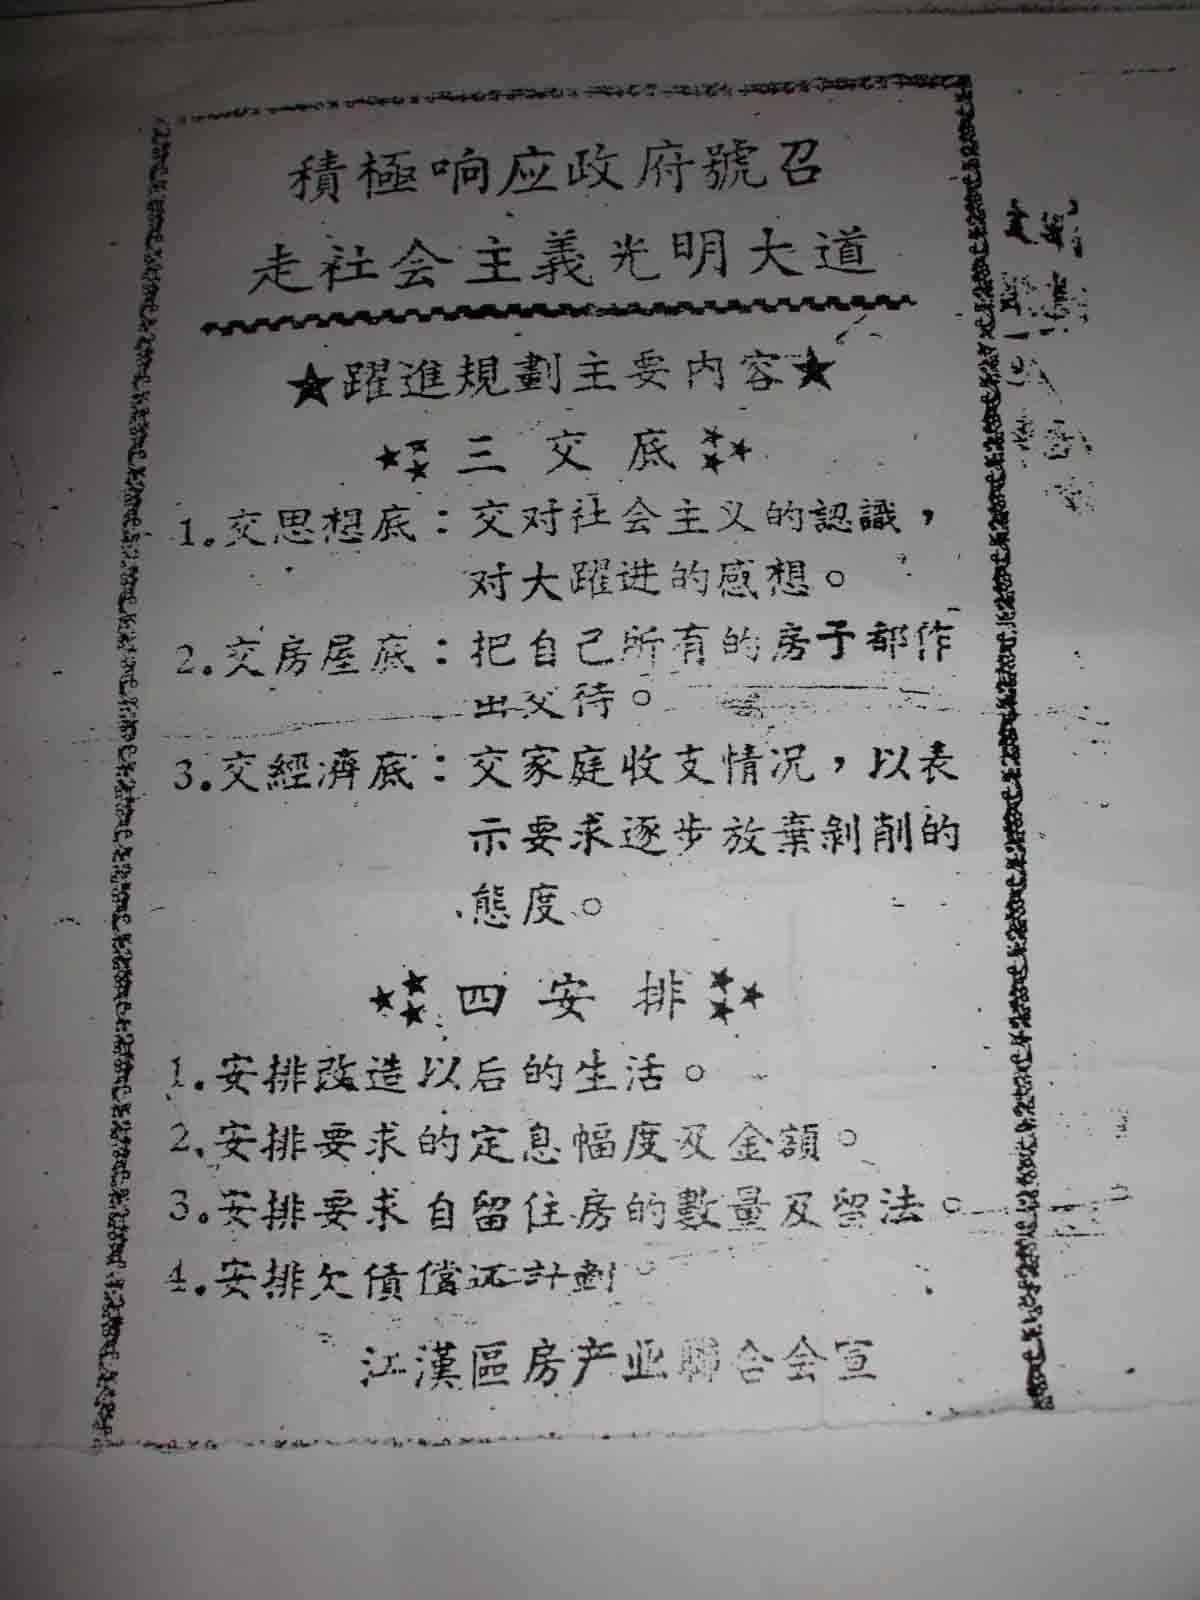 積極响应政府號召
走社会主義光明大道
★躍進規劃主要内容★
三交底
1.交思想底：交对社会主义的認識，
对大躍进的感想。
2.交房屋底：把自己所有的房子都作
出交待。
3.交經濟底：交家庭收支情况，以表
示要求逐步放棄剝削的
態度。
四安排
1.安排改造以后的生活。
2.安排要求的定息幅度及金額。
3.安排要求自留住房的數量及留法。
4.安排欠債償还計劃。
江漢區房产业聯合会宣